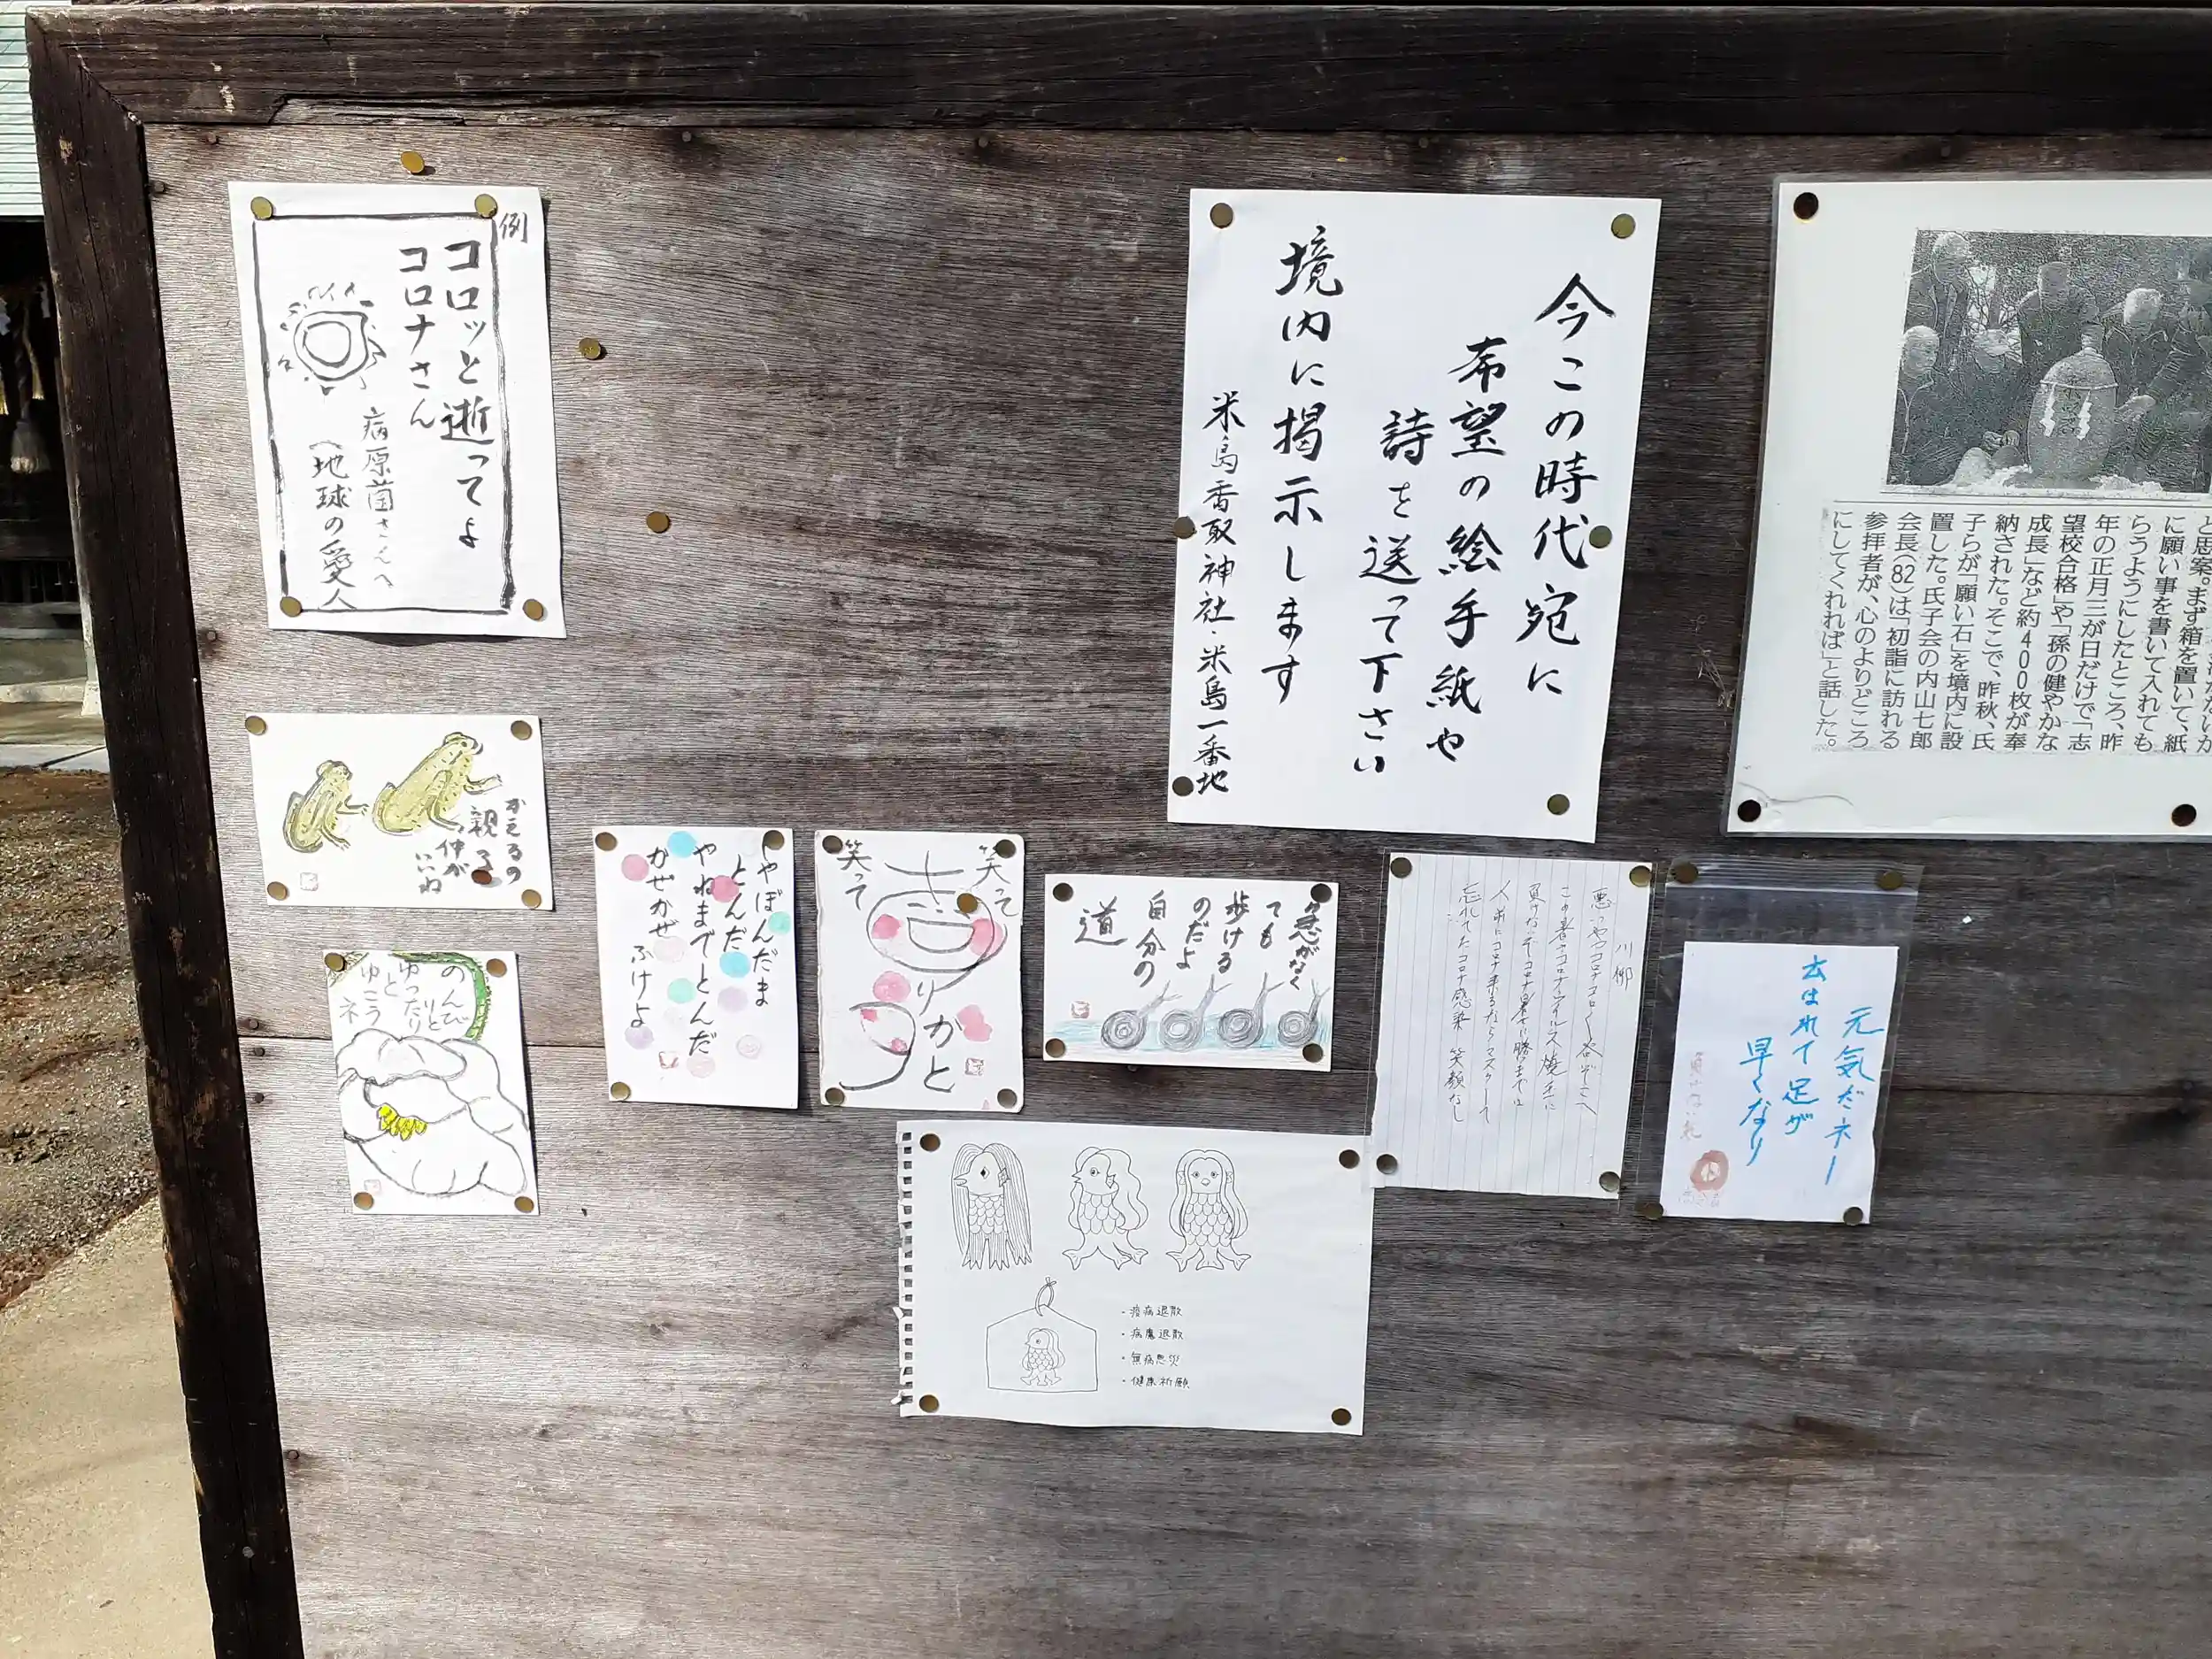 例
コロッと逝ってよ
コロナさん
病原菌さんへ
(地球の愛人
今この時代宛に
希望の絵手紙や
詩を送って下さい
境内に掲示します
米島香取神社・米島一番地
に願い事を書いて入れても
らうようにしたところ、昨
年の正月三が日だけで「志
望校合格」や「孫の健やかな
成長」など約400枚が奉
納された。そこで、昨秋、氏
子らが「願い石」を境内に設
置した。氏子会の内山七郎
会長(82)は「初詣に訪れる
参拝者が、心のよりどころ
にしてくれれば」と話した。
かえるの
親子
仲が
いいね
のんびり
ゆったりと
ゆこうネ
しやぼんだま
とんだ
やねまでとんだ
かぜかぜ
ふけよ
笑って
笑って
急がなく
ても
歩ける
のだよ
自分の
道
川柳
忘れてたコロナ感染 笑顔なし
元気だネー
云はれて足が
早くなり
・疫病退散
・病魔退散
・無病息災
・健康祈願